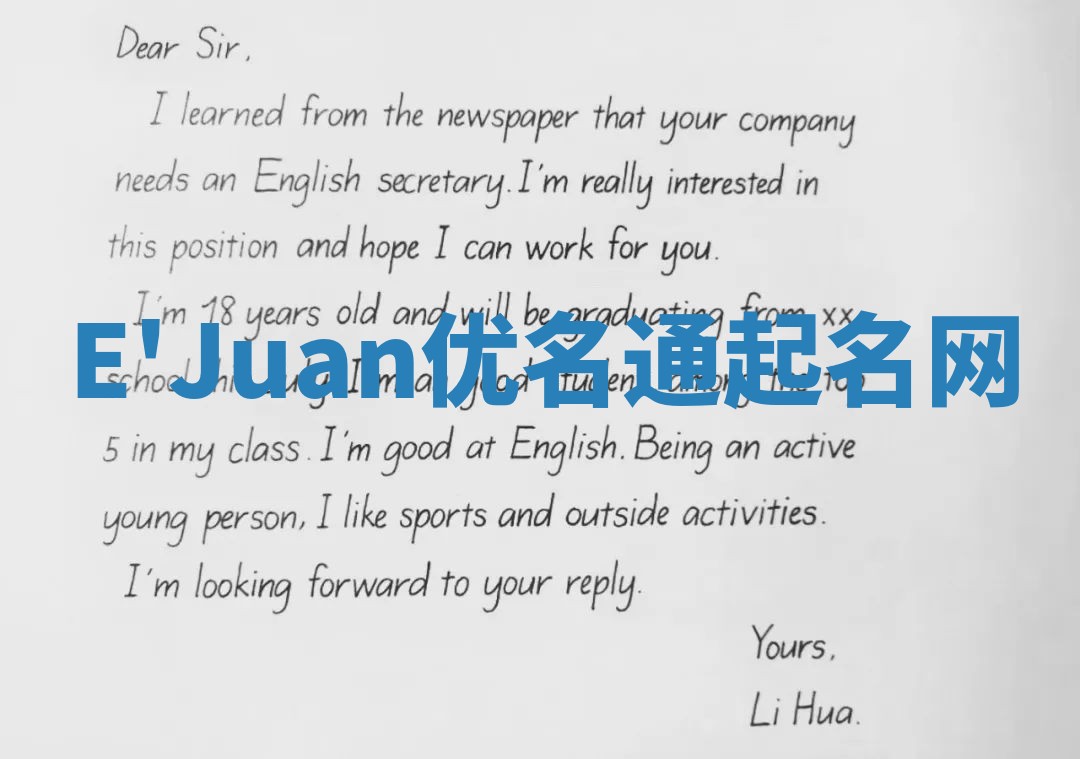 Dear Sir,
I learned from the newspaper that your company
needs an English secretary. I'm really interested in
this position and hope I can work for you.
I'm 18 years old and will be graduating from xx
E'Juan优名通起名网
school this July. I'm a good student among the top
5 in my class. I'm good at English. Being an active
young person, I like sports and outside activities.
I'm looking forward to your reply.
Yours,
Li Hua.